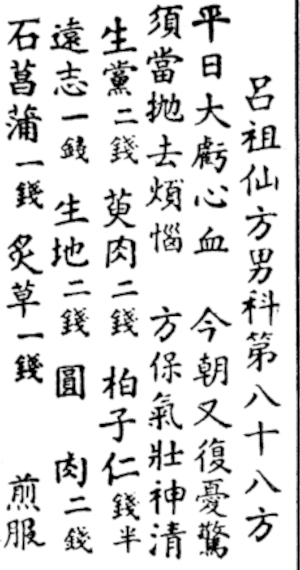 呂祖仙方男科第八十八方
平日大虧心血 今朝又復憂驚
須當拋去煩惱 方保氣壯神清
生黨二錢 萸肉二錢 柏子仁錢半
遠志一錢 生地二錢 圓肉二錢
石菖蒲一錢 炙草一錢 煎服